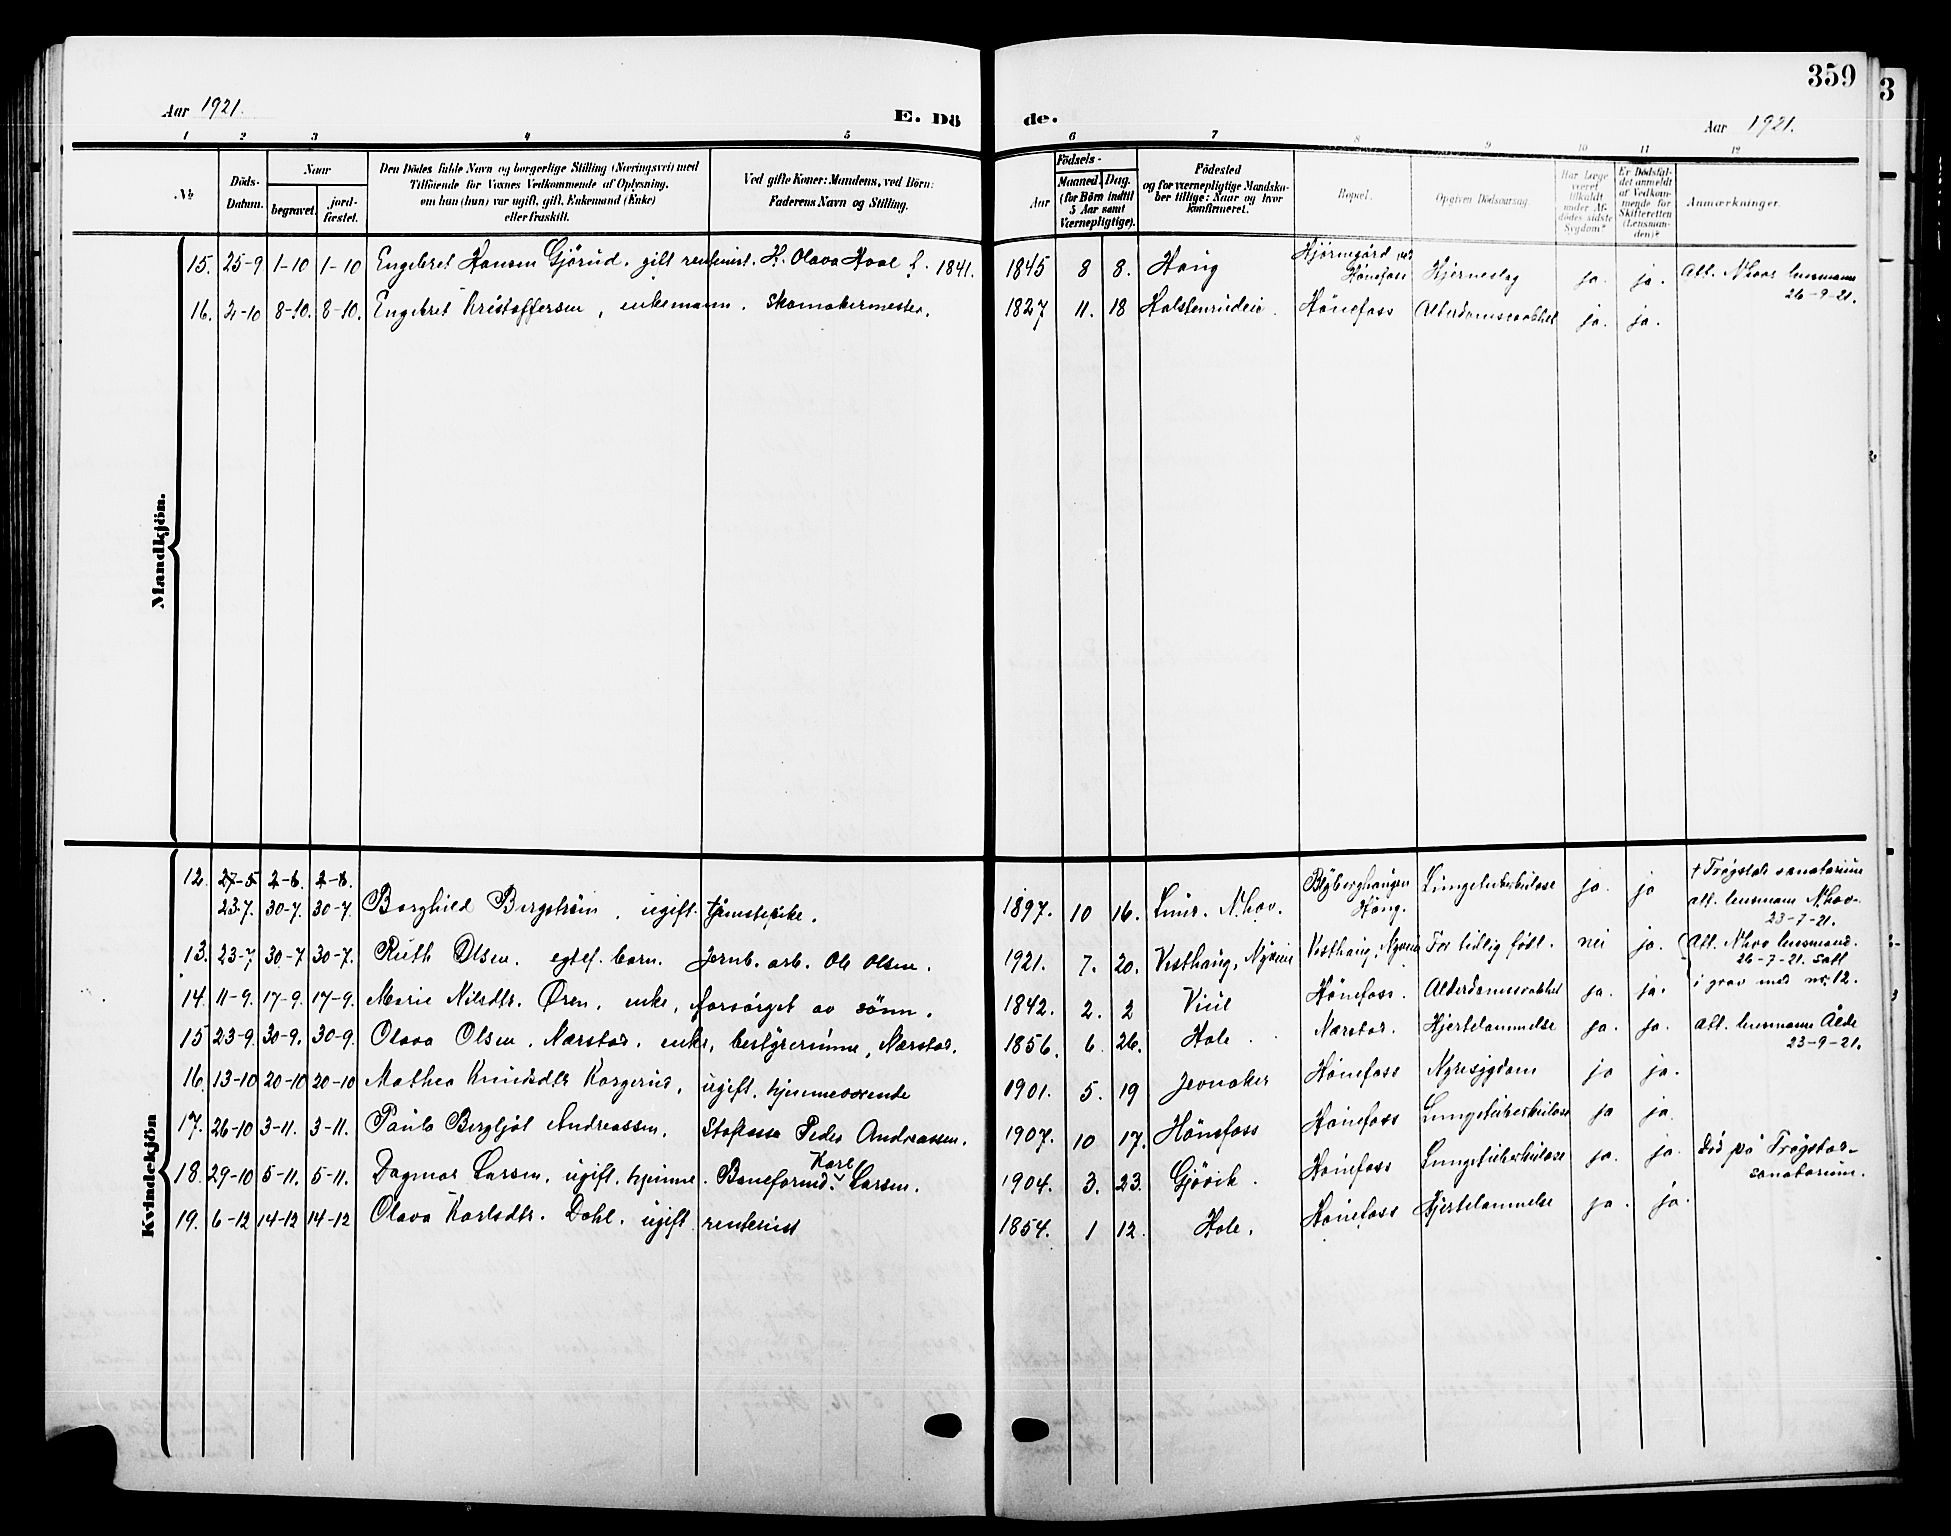 Aar 1921.
E. Dö
de.
359
Aar 1921.
1 2 3 4 5 6 7 8 9 10 11 12
No.
Döds-Datum.
Naar
begravet.
jord-fæstet.
Den Dödes fulde Navn og borgerlige Stilling (Næringsvei) med
Tilföiende for Voxnes Vedkommende af Oplysning,
om han (hun) var ugift, gift, Enkemand (Enke)
eller fraskilt.
Ved gifte Koner: Mandens, ved Börn:
Faderens Navn og Stilling.
Födsels-
Aar
Maaned. Dag.
(for Börn indtil
5 Aar samt
Værnepligtige).
Födested
og for værnepligtige Mandska-
ber tillige: Naar og hvor
konfirmeret.
Bopæl.
Opgiven Dödsaarsag.
Har Læge
været
tilkaldt
under Af-
dödes sidste
Sygdom?
Er Dödsfal-
det anmeldt
af Vedkom-
mende for
Skifteretten
(Lensman-
den)?
Anmærkninger.
Mandkjön.
15. 25-9 1-10 1-10 Engebret Hansen Gjörud. gift rentenist. H. Olava Hval f. 1841. 1845 8 8. Haug Hjörnegård ved Hönefoss Hjerneslag ja. ja. Att. N'hov lensmann 26-9-21.
16. 2-10 8-10. 8-10. Engebret Kristoffersen, enkemann. Skomakermester. 1827 11. 18 Halstenrudeie. Hönefoss Alderdomssvakhet ja. ja.
Kvindekjön
12. 27-5 2-6. 2-6.
23-7. 30-7. 30-7. Borghild Bergström. ugift. tjenestepike. 1897. 10 16. N.hov. Blÿberghaugen Haug. Lungetuberkulose ja. ja † Trögstad sanatorium att. lensmann N'hov 23-7-21.
13. 23-7 30-7 30-7. Ruth Olsen. egtef. barn. Jernb. arb. Ole Olsen. 1921. 7. 20. Vesthaug, Nyveien Vesthaug, Nyveien For tidlig född. nei ja. Att. N'hov lensmand. 26-7-21. satt i grav med nr. 12.
14. 11-9. 17-9. 17-9. Marie Nilsdtr. Ören, enke, forsörget av sönn. 1842. 2. 2 Hönefoss. Alderdomssvakhet ja. ja.
15 23-9. 30-9. 30-9. Olava Olsen. Nærstad. enke, bestyrerinne, Nærstad. 1856. 6. 26. Hole. Nærstad. Hjertelammelse ja. ja. Att. lensmann Ålde 23-9-21.
16. 13-10 20-10 20-10 Mathea Knudsdtr Korgerud, ugift, hjemmeværende 1901. 5. 19 Jevnaker Hönefoss Nyresygdom ja ja.
17. 26-10 3-11. 3-11. Paula Bergljot Andreassen. Peder Andreassen. 1907. 10 17. Hönefoss Hönefoss Lungetuberkulose ja ja.
18. 29-10 5-11. 5-11. Dagmar Larsen, ugift, hjemme. Baneformd. Karl Larsen. 1904. 3. 23. Gjövik. Hönefoss Lungetuberkulose ja. ja. Död på Trögstad-sanatorium.
19. 6-12 14-12 14-12 Olava Karlsdtr. Dahl. ugift. rentenist 1854. 1 12. Hole. Hönefoss Hjertelammelse ja. ja.